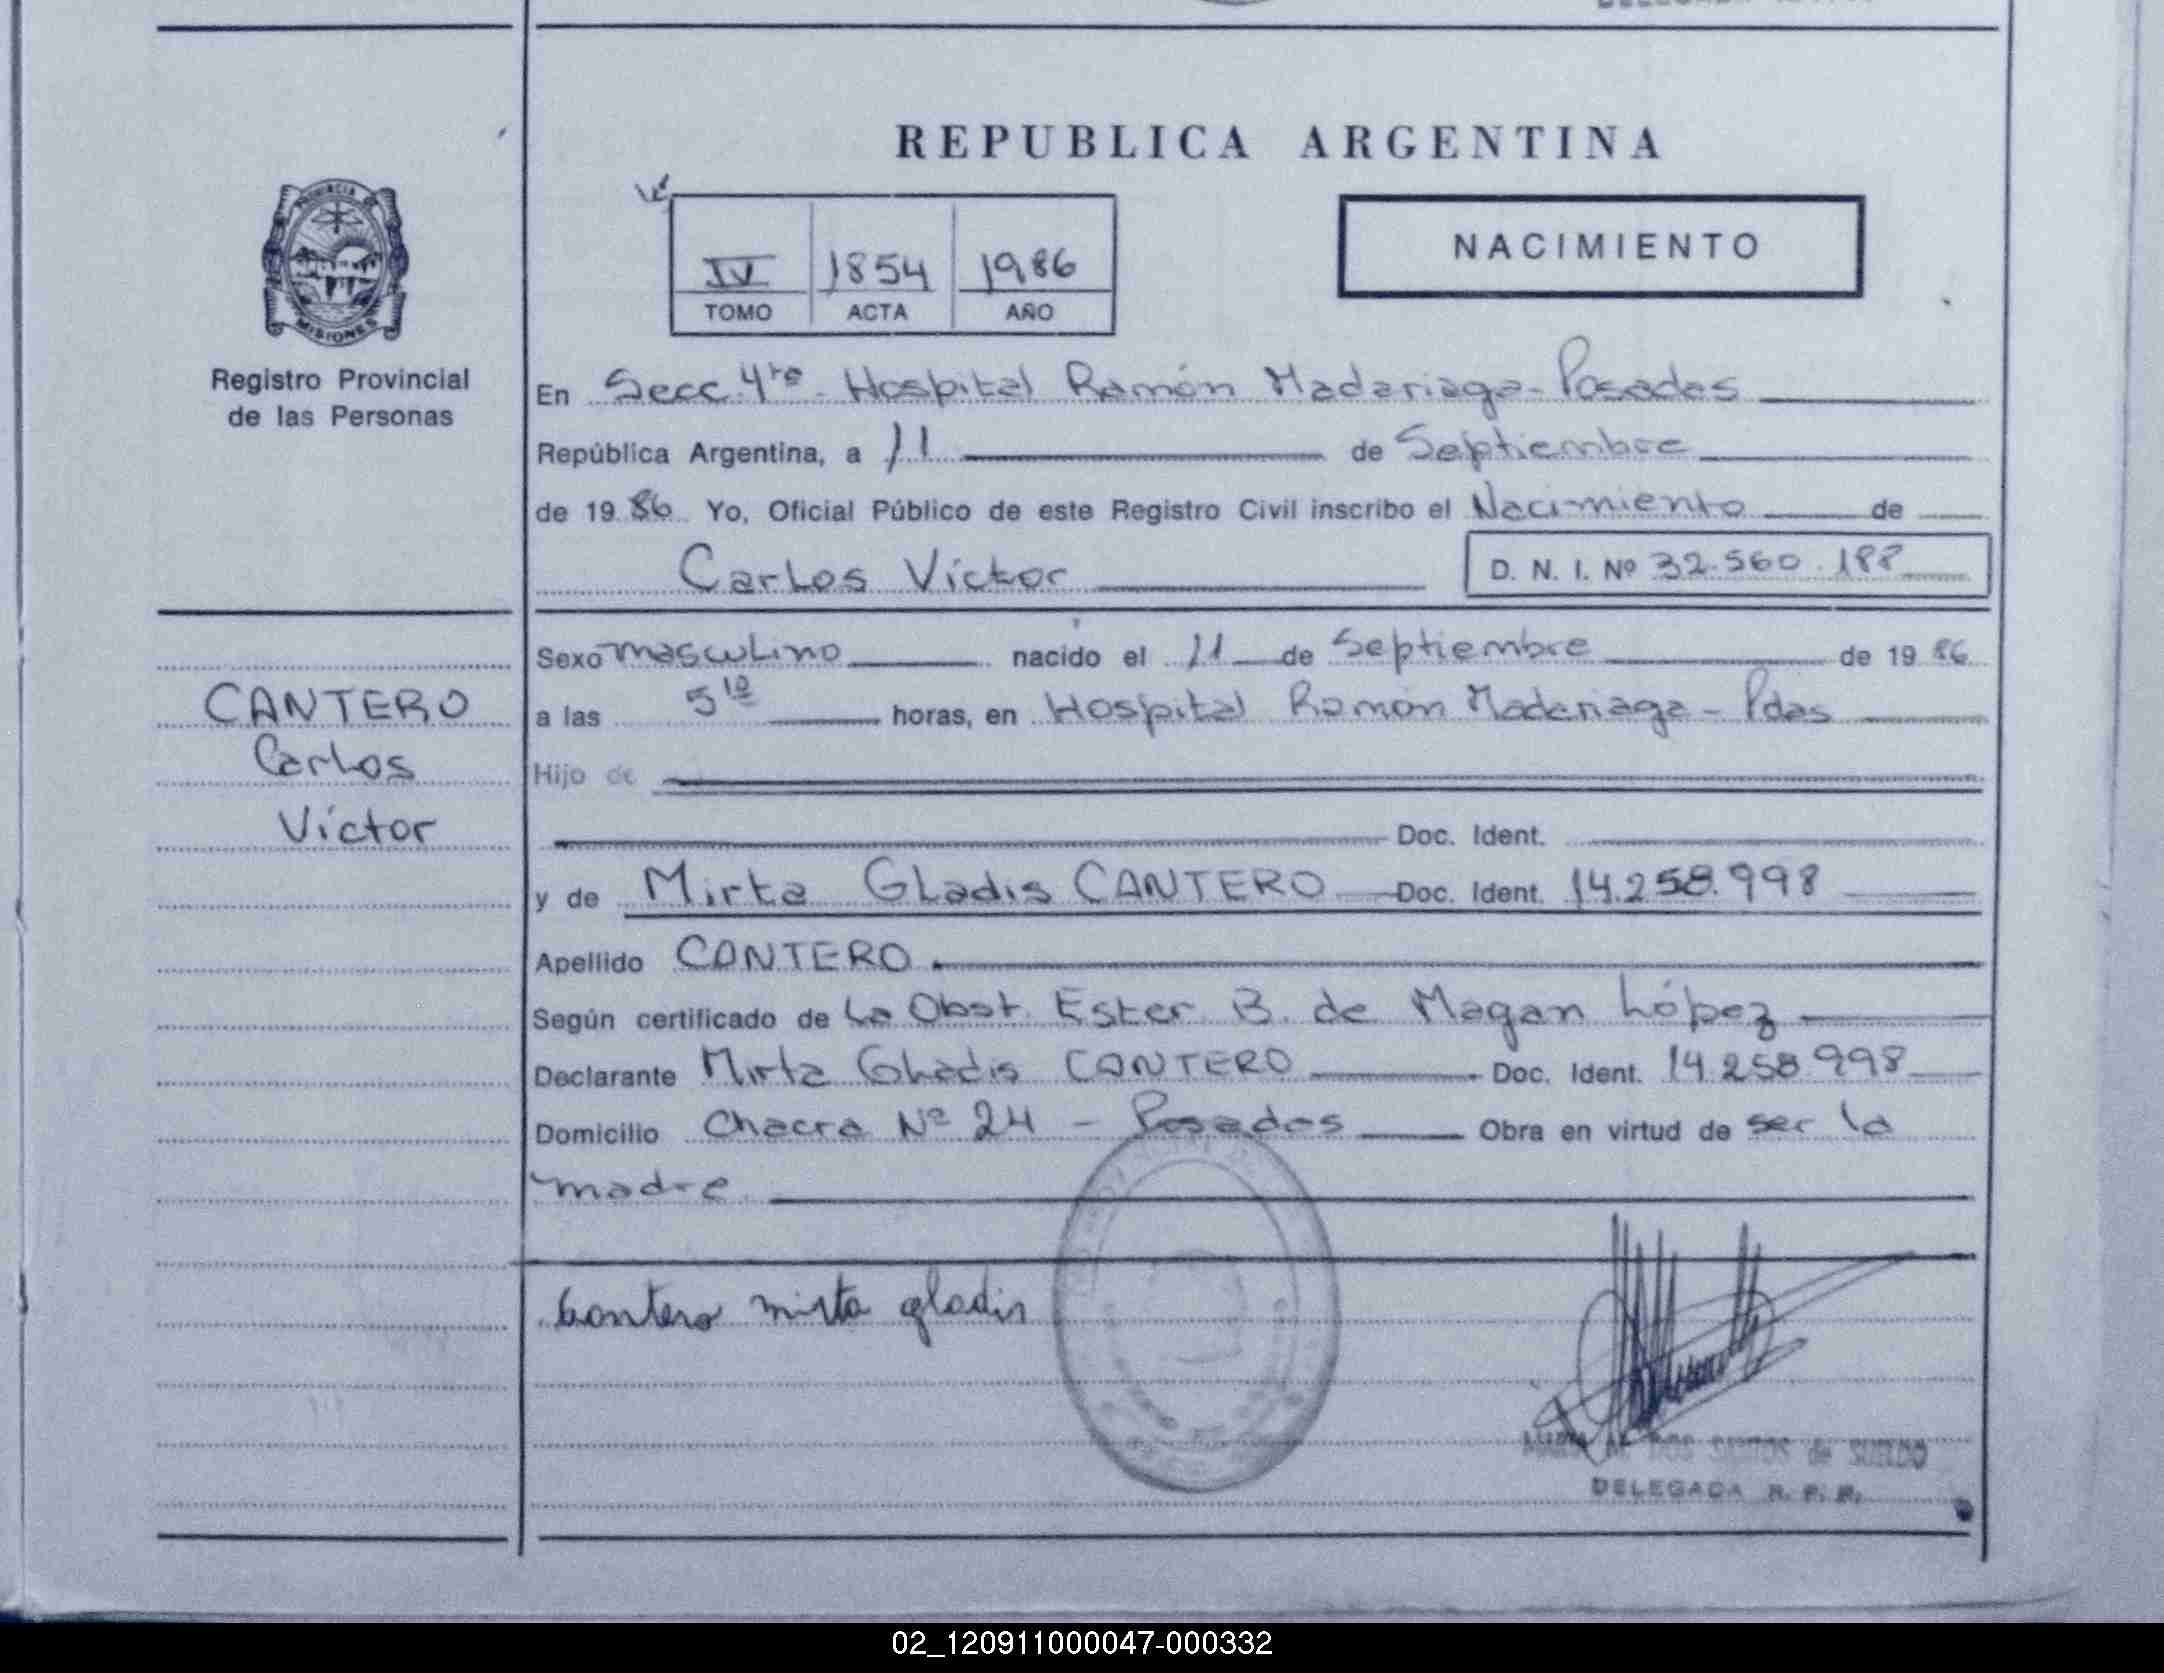 REPUBLICA ARGENTINA
PROVINCIA DE
MISIONES
Registro Provincial
de las Personas
IV 1854 1986
TOMO ACTA AÑO
NACIMIENTO
En Secc 4ta Hospital Ramón Madariaga - Posadas
República Argentina, a 11 de Septiembre
de 19 86 Yo, Oficial Público de este Registro Civil inscribo el Nacimiento de
Carlos Víctor D. N. I. Nº 32.560.188
CANTERO
Carlos
Víctor
Sexo masculino nacido el 11 de Septiembre de 19 86
a las 5 10 horas, en Hospital Ramón Madariaga - Pdas
Hijo de
Doc. Ident.
y de Mirta Gladis CANTERO Doc. Ident. 14.258.998
Apellido CANTERO
Según certificado de La Obst. Ester B. de Magan López
Declarante Mirta Gladis CANTERO Doc. Ident. 14.258.998
Domicilio Chacra Nº 24 - Posadas Obra en virtud de ser la
madre
Cantero mirta gladis
DOS SANTOS de
DELEGADA R. P. P.
02_120911000047-000332